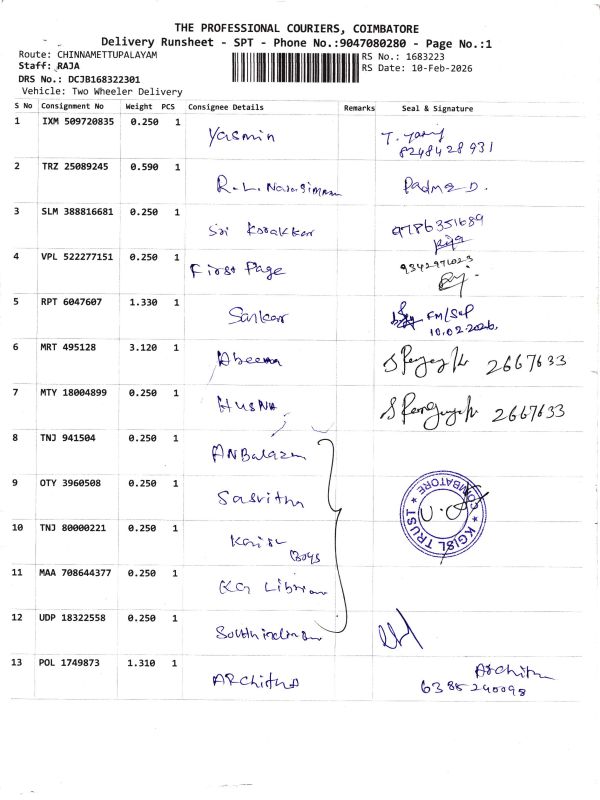 THE PROFESSIONAL COURIERS, COIMBATORE
Delivery Runsheet - SPT - Phone No.:9047080280 - Page No.:1
Route: CHINNAMETTUPALAYAM
RS No.: 1683223
Staff: RAJA
RS Date: 10-Feb-2026
DRS No.: DCJB168322301
Vehicle: Two Wheeler Delivery
S No Consignment No Weight PCS Consignee Details Remarks Seal & Signature
1 IXM 509720835 0.250 1 Yasmin
8248428931
2 TRZ 25089245 0.590 1 R.L. Padma D.
3 SLM 388816681 0.250 1 Sri Korakkar 9786351689
4 VPL 522277151 0.250 1 First Page 9342971023
5 RPT 6047607 1.330 1 Sankar FM/Sep
10.02.2026.
6 MRT 495128 3.120 1 Abeena 2667633
7 MTY 18004899 0.250 1 HUSNA 2667633
8 TNJ 941504 0.250 1
9 OTY 3960508 0.250 1 Sasvitha
COIMBATORE ★ KGISL TRUST ★
10 TNJ 80000221 0.250 1
Boys
11 MAA 708644377 0.250 1 KG
12 UDP 18322558 0.250 1
13 POL 1749873 1.310 1 ARChitha Architha
6385240098